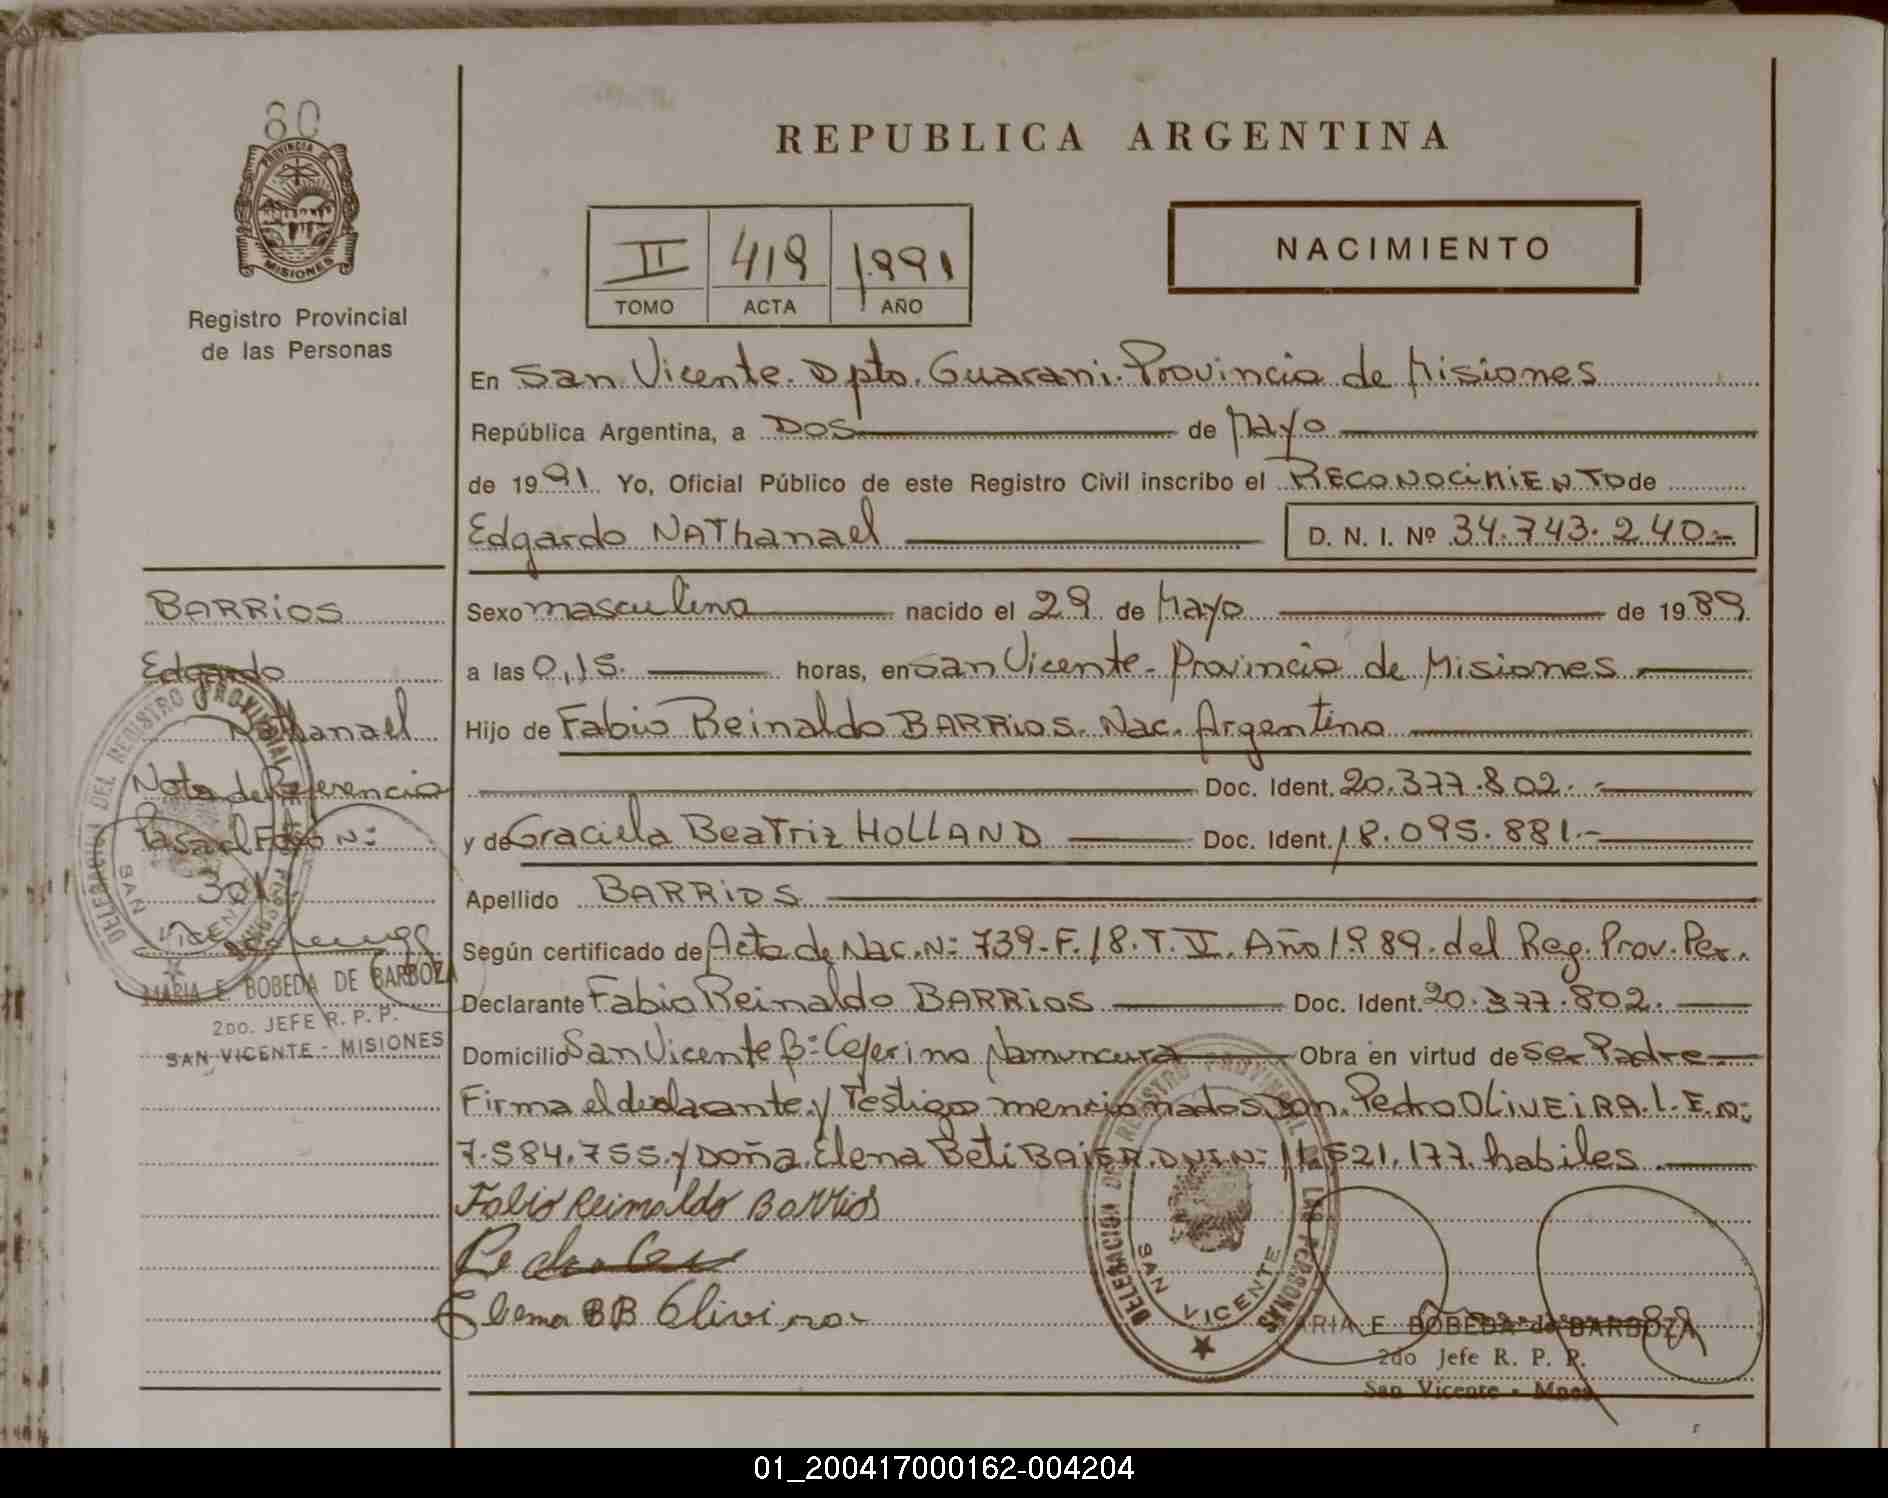 80
PROVINCIA DE
MISIONES
Registro Provincial
de las Personas
REPUBLICA ARGENTINA
II 419 1.991
TOMO ACTA AÑO
NACIMIENTO
En San Vicente. Dpto. Guarani. Provincia de Misiones
República Argentina, a DOS de Mayo
de 1991. Yo, Oficial Público de este Registro Civil inscribo el RECONOCIMIENTO de
Edgardo NAThanael D. N. I. Nº 34.743.240.-
Sexo masculino nacido el 29 de Mayo de 1989
a las 0,15. horas, en San Vicente - Provincia de Misiones
Hijo de Fabio Reinaldo BARRIOS. Nac. Argentino
Doc. Ident. 20.377.802.-
y de Graciela BeaTriz HOLLAND Doc. Ident. 18.095.881.-
Apellido BARRIOS
Según certificado de Acta de Nac. N: 739-F.18.T.II. Año 1.989. del Reg. Prov. Per.
Declarante Fabio Reinaldo BARRIOS Doc. Ident. 20.377.802.
Domicilio San Vicente B: Ceferino Namuncura Obra en virtud de Ser Padre
Firma el declarante y Testigos mencionados, Don. Pedro OLIVEIRA. L.E.N:
7.584.755. y Doña Elena Beti BAIER. DNI N: 11.521.177. habiles
Fabio Reinaldo Barrios
Elema BB Olivira
BARRIOS
Edgardo
Nathanael
Nota de Referencia
Pasa al Folio N:
301
DELEGACION DEL REGISTRO PROVINCIAL
SAN VICENTE
MARIA E. BOBEDA DE BARBOZA
2DO. JEFE R. P. P.
SAN VICENTE - MISIONES
DELEGACION DEL REGISTRO PROVINCIAL DE LAS PERSONAS
SAN VICENTE
MARIA E BOBEDA de BARBOZA
2do Jefe R. P. P.
San Vicente - Mnes
01_200417000162-004204